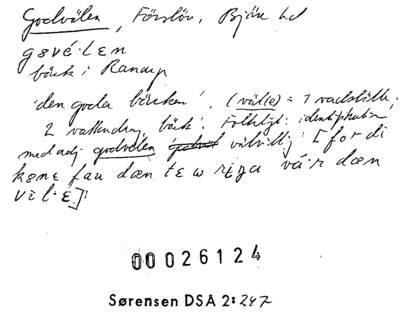 Godvélen, Förslöv, Bjäre hd
gɵvé·lɛn
bäck i Ranarp
'den goda bäcken'. (väl(e) = 1 vadställe;
2 vattendrag, bäck'. Folkligt: identifikation
med adj. godvélen välvillig [for di
kɵnɛ fau dæn tɛ w riga vá·r dæn
vilɛ]
00026124
Sørensen DSA 2: 247